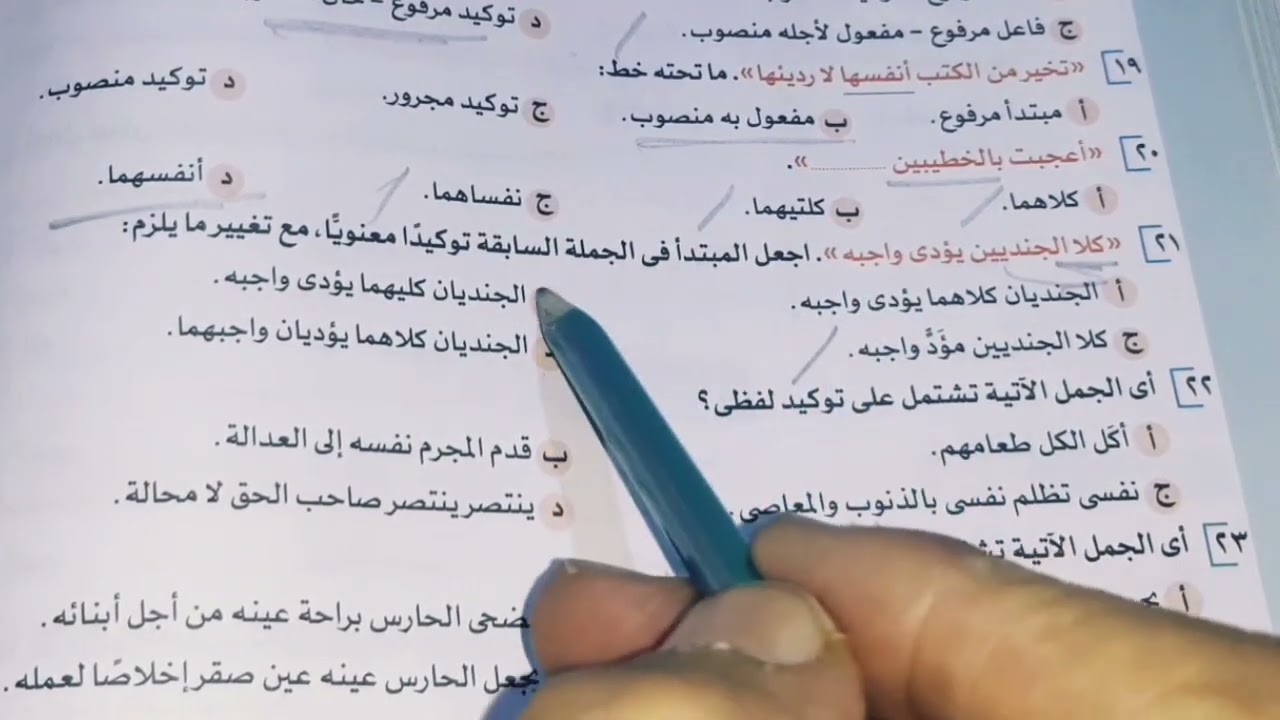 د توكيد مرفوع –
ج فاعل مرفوع – مفعول لأجله منصوب.
١٩ «تخير من الكتب أنفسها لا رديئها». ما تحته خط:
أ مبتدأ مرفوع. ب مفعول به منصوب. ج توكيد مجرور. د توكيد منصوب.
٢٠ «أعجبت بالخطيبين ..........».
أ كلاهما. ب كلتيهما. ج نفساهما. د أنفسهما.
٢١ «كلا الجنديين يؤدى واجبه». اجعل المبتدأ فى الجملة السابقة توكيدًا معنويًّا، مع تغيير ما يلزم:
أ الجنديان كلاهما يؤدى واجبه. الجنديان كليهما يؤدى واجبه.
ج كلا الجنديين مؤَدًّ واجبه. د الجنديان كلاهما يؤديان واجبهما.
٢٢ أى الجمل الآتية تشتمل على توكيد لفظى؟
أ أكَل الكل طعامهم. ب قدم المجرم نفسه إلى العدالة.
ج نفسى تظلم نفسى بالذنوب والمعاصى. د ينتصر ينتصر صاحب الحق لا محالة.
٢٣ أى الجمل الآتية
أ
يضحى الحارس براحة عينه من أجل أبنائه.
يجعل الحارس عينه عين صقر إخلاصًا لعمله.